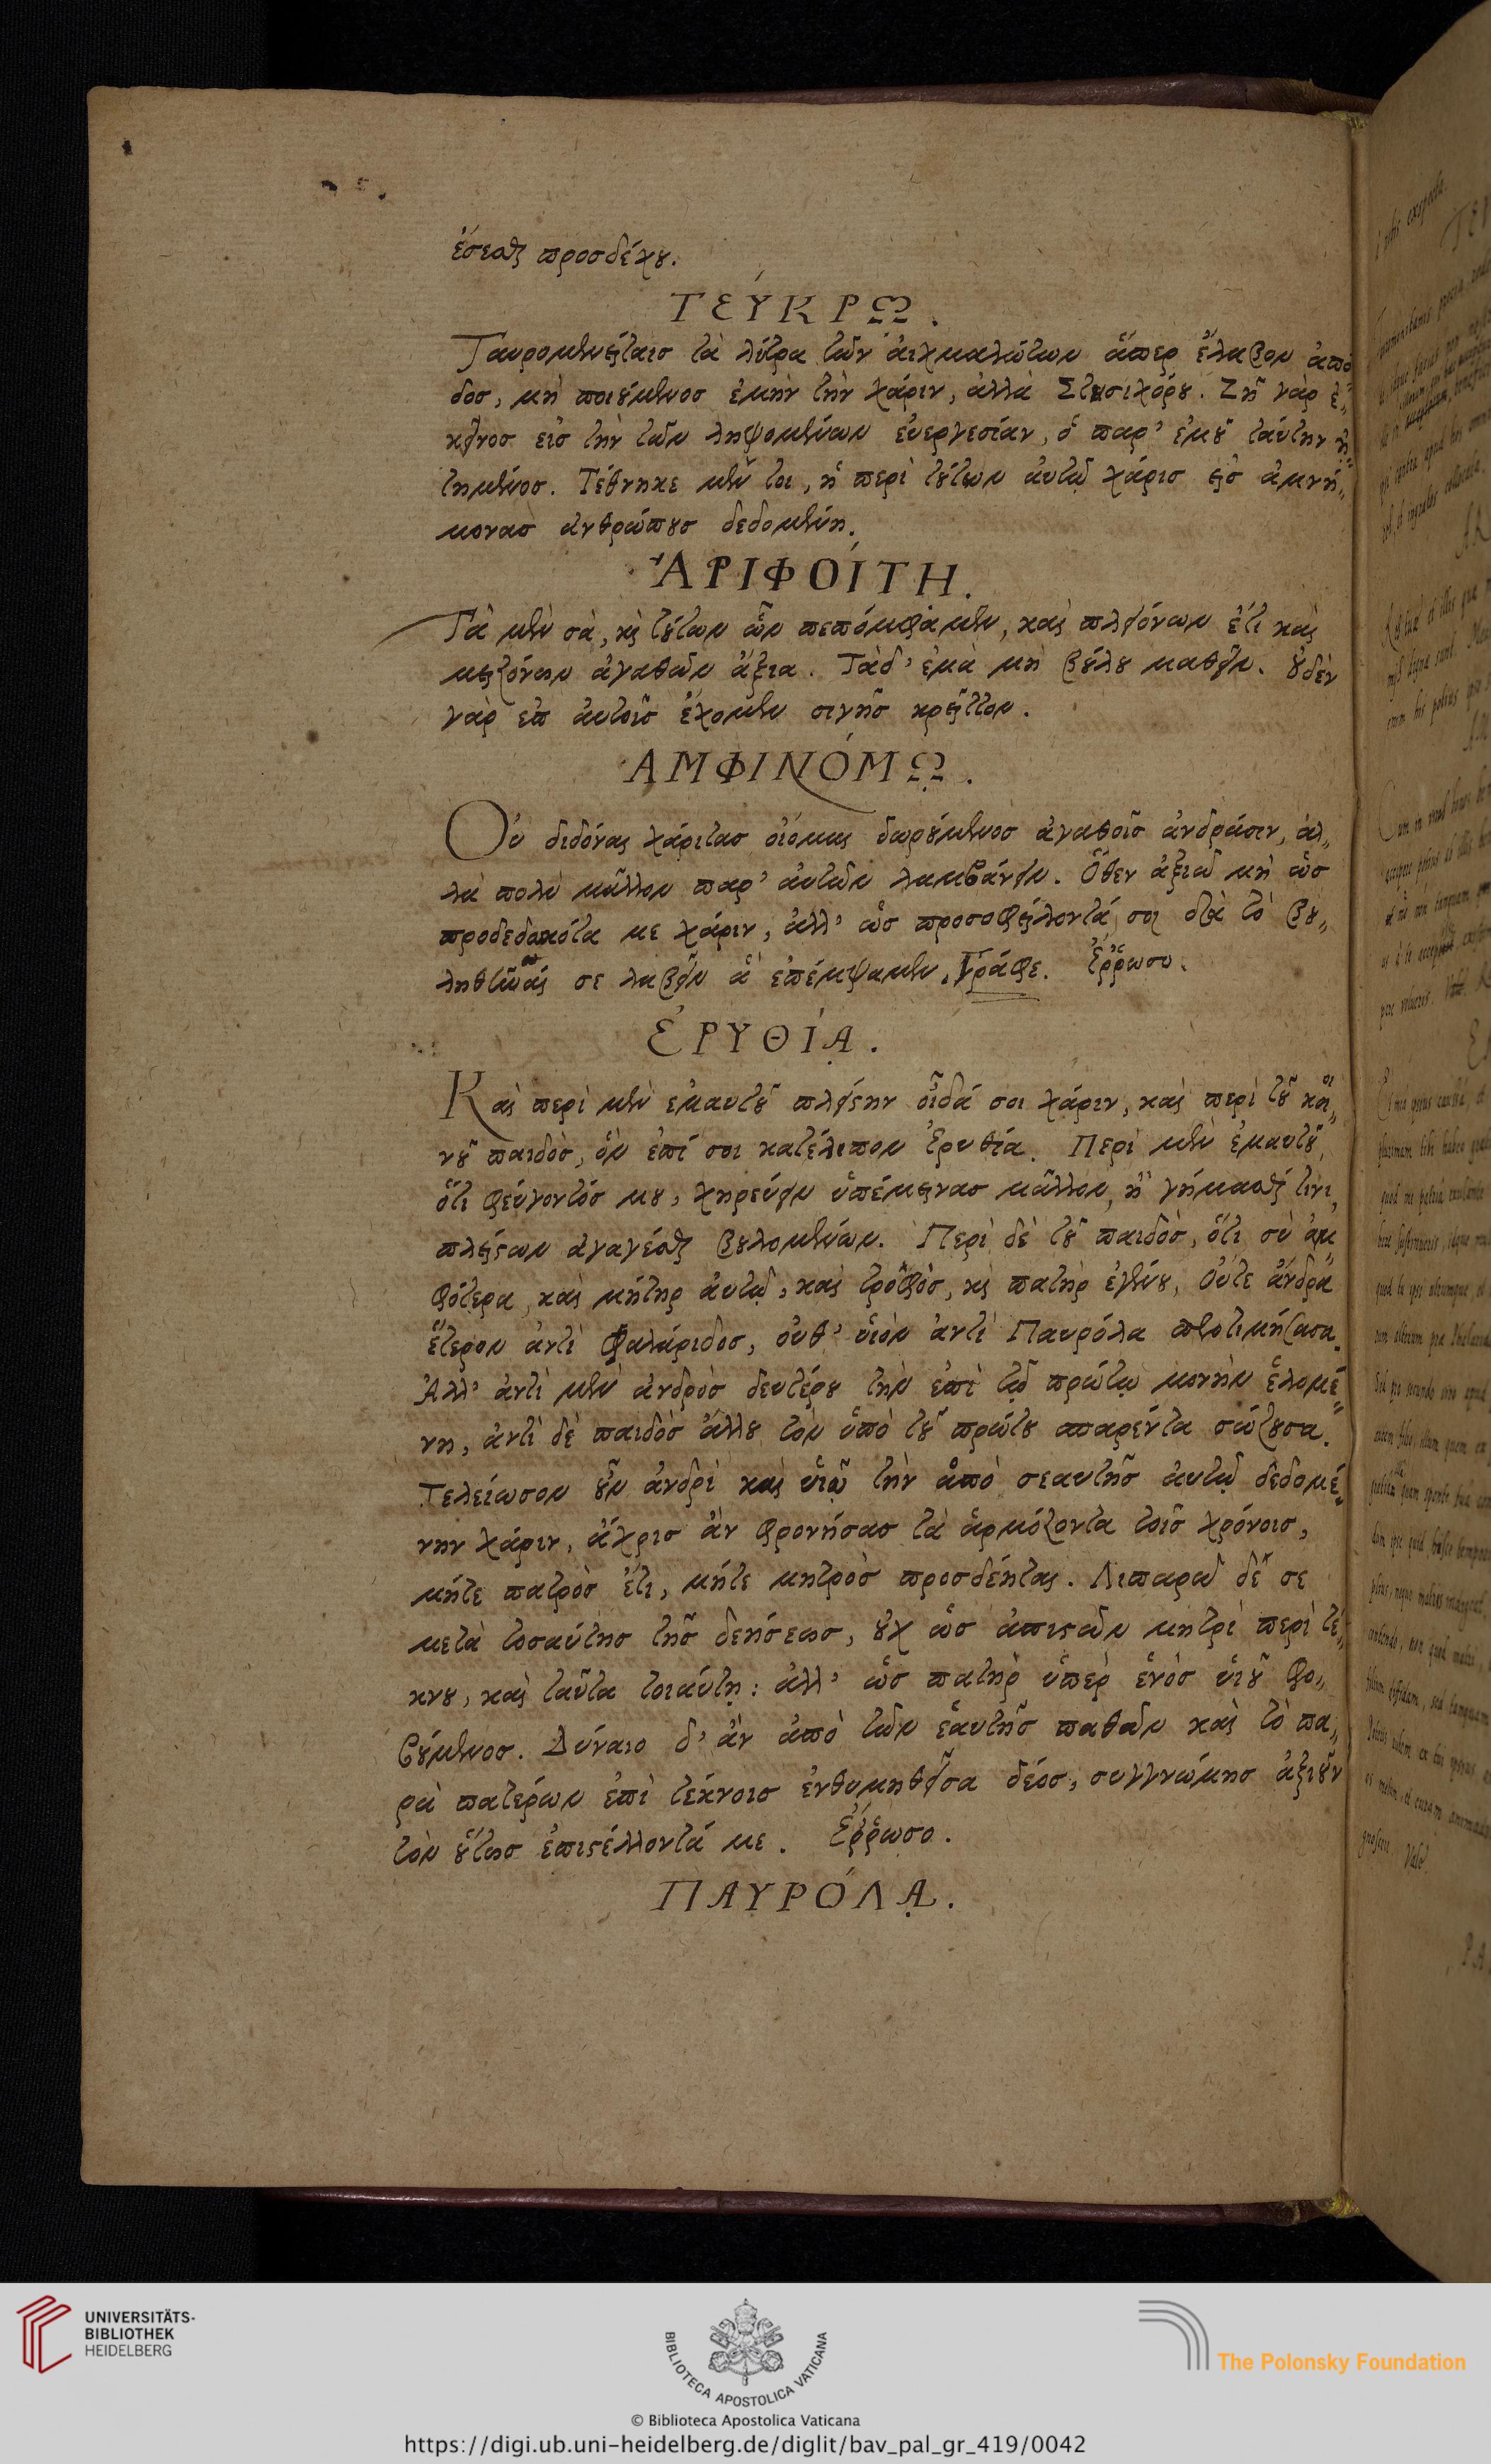 ἔσεσθαι προσδέχου.
ΤΕΎΚΡΩ.
Ταυρομενείταις τὰ λύτρα τῶν ἀιχμαλώτων ἅπερ ἔλαβον ἀπό
δος, μὴ ποιούμενος ἐμὴν τὴν χάριν, ἀλλὰ Στησιχόρου. Ζῆ γὰρ ἐ„
κεῖνος εἰς τὴν τῶν ληψομένων ἐυεργεσίαν, ὁ παρ' ἐμοῦ ταύτην ἠ„
τημένος. Τέθνηκε μέν τοι, ἡ περὶ τούτων ἀυτῷ χάρις εἰς ἀμνή„
μονας ἀνθρώπους δεδομένη.
ἈΡΙΦΟΊΤΗ.
Τὰ μὲν σὰ, καὶ τούτων ὧν πεπόμφαμεν, καὶ πλειόνων ἔτι καὶ
μειζόνων ἀγαθῶν ἄξια. Τὰδ' ἐμὰ μὴ βούλου μαθεῖν. οὐδὲν
γὰρ ἐπ ἀυτοῖς ἔχομεν σιγῆς κρεῖττον.
ΑΜΦΙΝΌΜΩ.
Οὐ διδόναι χάριτας οἰόμαι δωρούμενος ἀγαθοῖς ἀνδράσιν, ἀλ„
λὰ πολὺ μᾶλλον παρ' ἀυτῶν λαμβάνειν. Ὅθεν ἀξιῶ μὴ ὡς
προδεδωκότα με χάριν, ἀλλ' ὡς προσοφείλοντά σοι διὰ τὸ βου„
ληθῆναί σε λαβεῖν ἃ ἐπέμψαμεν, Γράφε. Ἔρρωσο.
ἘΡΥΘΊᾼ.
Καὶ περὶ μὲν ἐμαυτοῦ πλείστην οἶδά σοι χάριν, καὶ περὶ τοῦ κοι„
νοῦ παιδὸς, ὃν ἐπί σοι κατέλιπον Ἐρυθία. Περὶ μὲν ἐμαυτοῦ,
ὅτι φεύγοντός μου, χηρεύειν ὑπέμεινας μᾶλλον, ἢ γήμασθαί τινι,
πλείστων ἀγαγέσθαι βουλομένων. Περὶ δὲ τοῦ παιδὸς, ὅτι σὺ ἀμ„
φότερα, καὶ μήτηρ ἀυτῷ, καὶ τροφὸς, καὶ πατὴρ ἐγένου, Οὔτε ἄνδρα
ἕτερον ἀντὶ Φαλάριδος, οὐθ' ὑιὸν ἀντὶ Παυρόλα προτιμήσασα.
Ἀλλ' ἀντὶ μὲν ἀνδρὸς δευτέρου τὴν ἐπὶ τῷ πρώτῳ μονὴν ἑλομέ„
νη, ἀντὶ δὲ παιδὸς ἄλλου τὸν ὑπὸ τοῦ πρώτου σπαρέντα σώζουσα.
Τελείωσον οὖν ἀνδρὶ καὶ ὑιῷ τὴν ἀπὸ σεαυτῆς ἀυτῷ δεδομέ„
νην χάριν, ἄχρις ἂν φρονήσας τὰ ἁρμόζοντα τοῖς χρόνοις,
μήτε πατρὸς ἔτι, μήτε μητρὸς προσδέηται. Λιπαρῶ δέ σε
μετὰ τοσαύτης τῆς δεήσεως, οὐχ ὡς ἀπιστῶν μητρὶ περὶ τέ„
κνου, καὶ ταῦτα τοιαύτῃ: ἀλλ' ὡς πατὴρ ὑπὲρ ἑνὸς ὑιοῦ φο„
βούμενος. Δύναιο δ' ἂν ἀπὸ τῶν ἑαυτῆς παθῶν καὶ τὸ πα„
ρὰ πατέρων ἐπὶ τέκνοις ἐνθυμηθεῖσα δέος, συγγνώμης ἀξιοῦν
τὸν οὕτως ἐπιστέλλοντά με. Ἔρρωσο.
ΠΑΥΡΌΛᾼ.
UNIVERSITÄTS-
BIBLIOTHEK
HEIDELBERG
BIBLIOTECA APOSTOLICA VATICANA
The Polonsky Foundation
© Biblioteca Apostolica Vaticana
https://digi.ub.uni-heidelberg.de/diglit/bav_pal_gr_419/0042